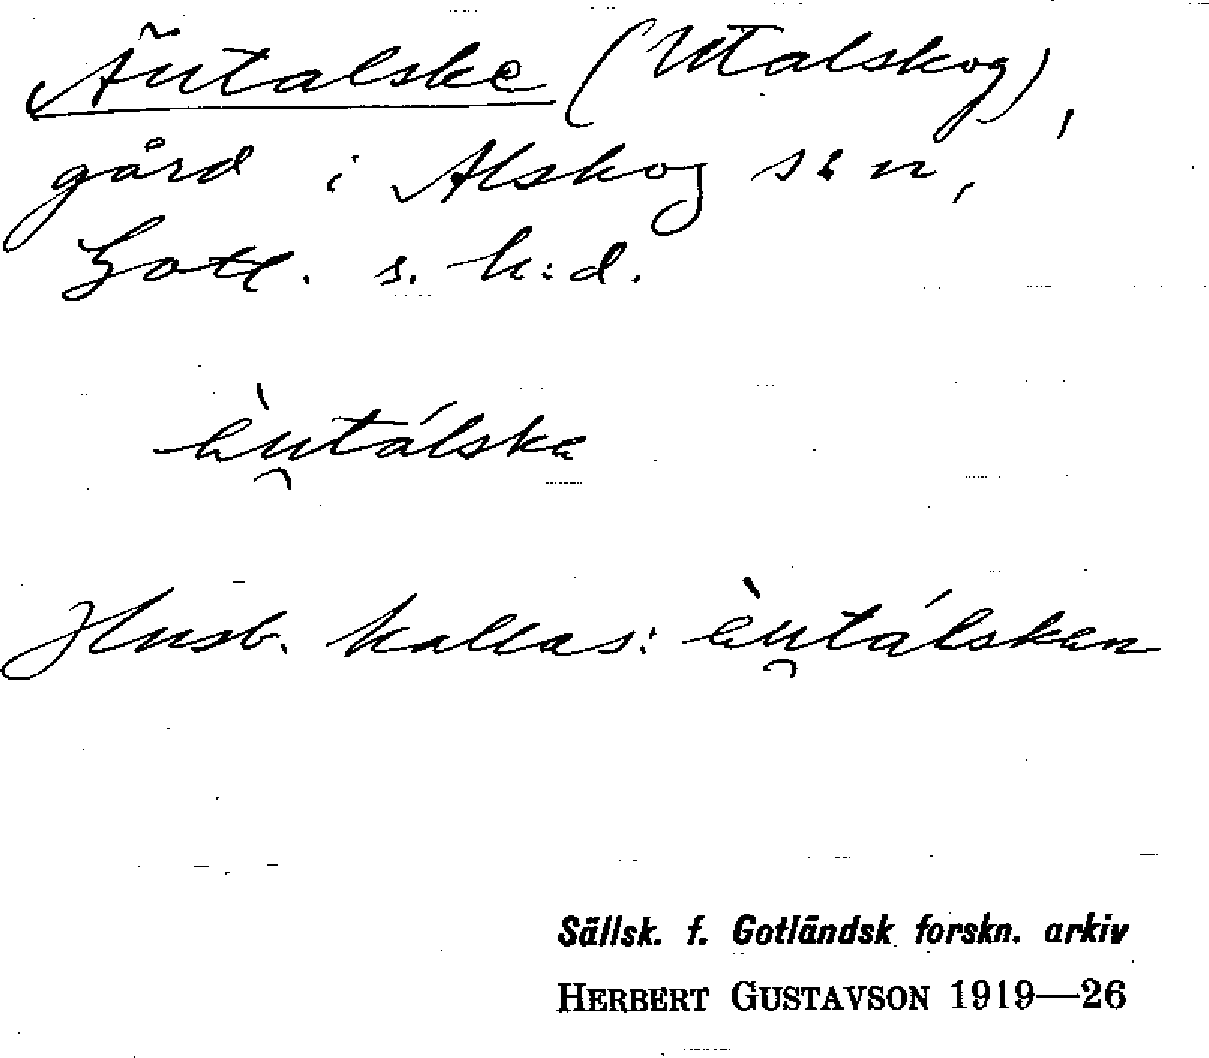 Äutalske (Utalskog),
gård i Alskog s:n,
Gotl. s. h:d.
àu̯tálska
Husb. kallas: àu̯tálsken
Sällsk. f. Gotländsk forskn. arkiv
HERBERT GUSTAVSON 1919—26